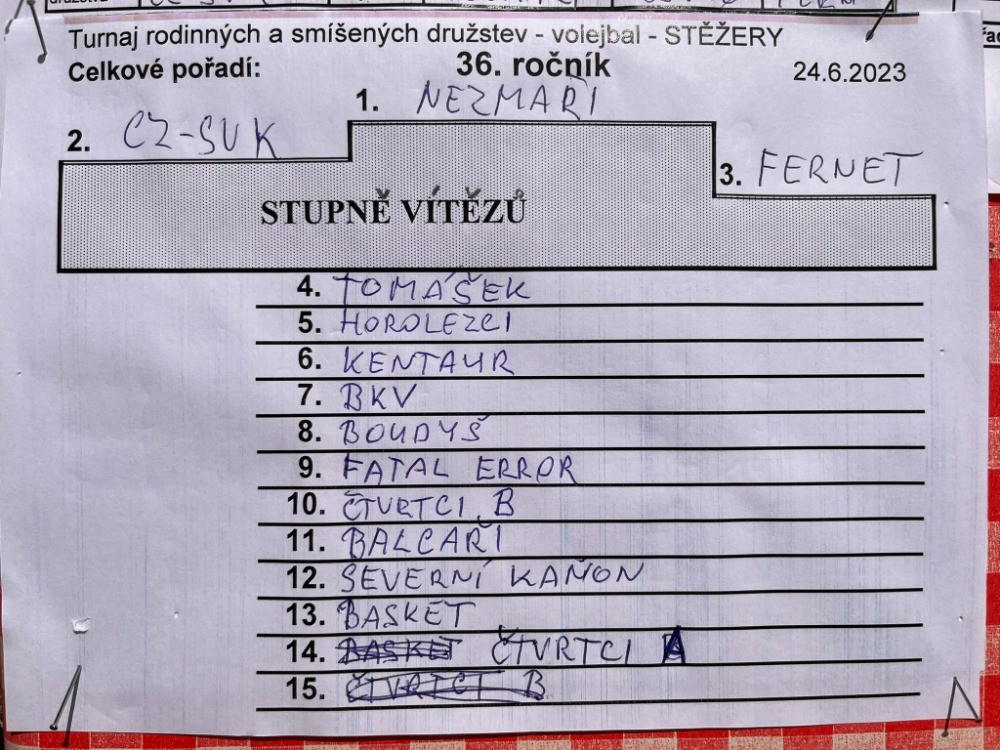 Turnaj rodinných a smíšených družstev - volejbal - STĚŽERY
Celkové pořadí: 36. ročník 24.6.2023
1. NEZMAŘI
2. CZ-SVK
3. FERNET
STUPNĚ VÍTĚZŮ
4. TOMÁŠEK
5. HOROLEZCI
6. KENTAUR
7. BKV
8. BOUDYŠ
9. FATAL ERROR
10. ČTVRTCI B
11. BALCAŘI
12. SEVERNÍ KAŇON
13. BASKET
14. BASKET ČTVRTCI A
15. ČTVRTCI B